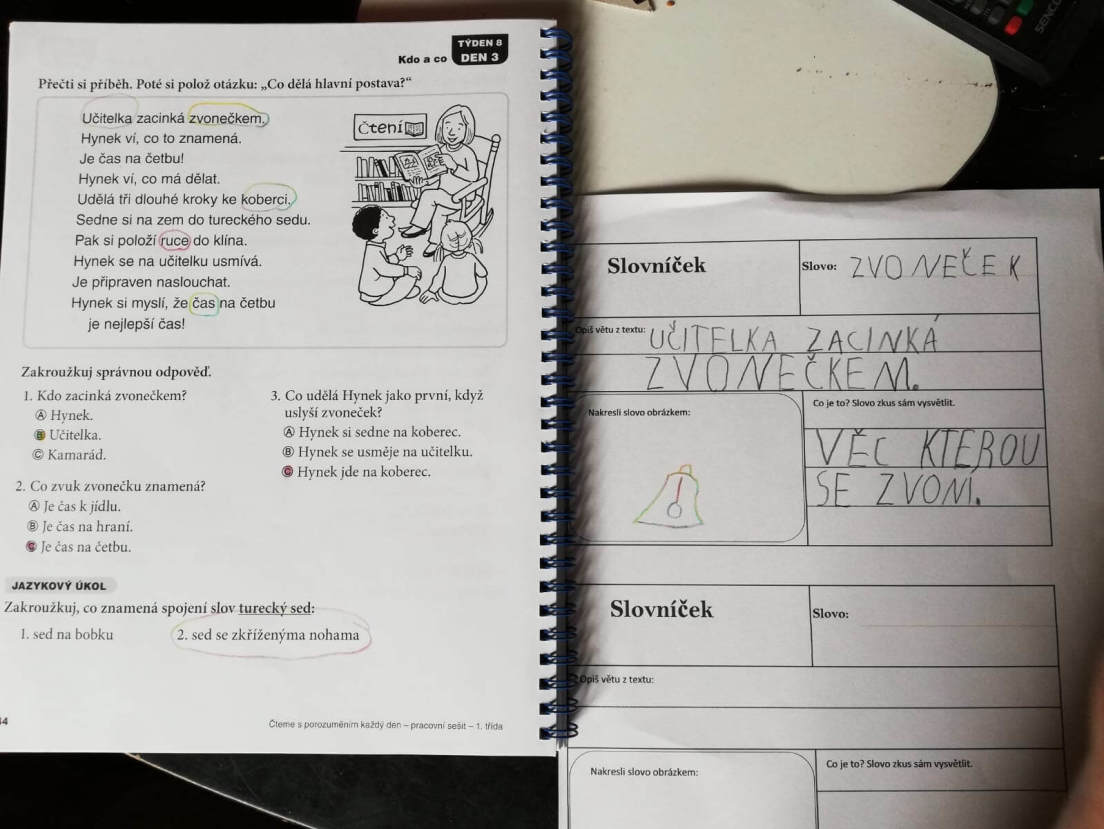 TÝDEN 8
Kdo a co DEN 3
Přečti si příběh. Poté si polož otázku: „Co dělá hlavní postava?“
Učitelka zacinká zvonečkem.
Hynek ví, co to znamená.
Je čas na četbu!
Hynek ví, co má dělat.
Udělá tři dlouhé kroky ke koberci.
Sedne si na zem do tureckého sedu.
Pak si položí ruce do klína.
Hynek se na učitelku usmívá.
Je připraven naslouchat.
Hynek si myslí, že čas na četbu
je nejlepší čas!
Čtení
Zakroužkuj správnou odpověď.
1. Kdo zacinká zvonečkem?
Ⓐ Hynek.
Ⓑ Učitelka.
Ⓒ Kamarád.
2. Co zvuk zvonečku znamená?
Ⓐ Je čas k jídlu.
Ⓑ Je čas na hraní.
Ⓒ Je čas na četbu.
3. Co udělá Hynek jako první, když
uslyší zvoneček?
Ⓐ Hynek si sedne na koberec.
Ⓑ Hynek se usměje na učitelku.
Ⓒ Hynek jde na koberec.
JAZYKOVÝ ÚKOL
Zakroužkuj, co znamená spojení slov turecký sed:
1. sed na bobku 2. sed se zkříženýma nohama
Čteme s porozuměním každý den – pracovní sešit – 1. třída
Slovníček
Slovo: ZVONEČEK
Opiš větu z textu: UČITELKA ZACINKÁ
ZVONEČKEM.
Nakresli slovo obrázkem:
Co je to? Slovo zkus sám vysvětlit.
VĚC KTEROU
SE ZVONÍ.
Slovníček
Slovo:
Opiš větu z textu:
Nakresli slovo obrázkem:
Co je to? Slovo zkus sám vysvětlit.
SENCO